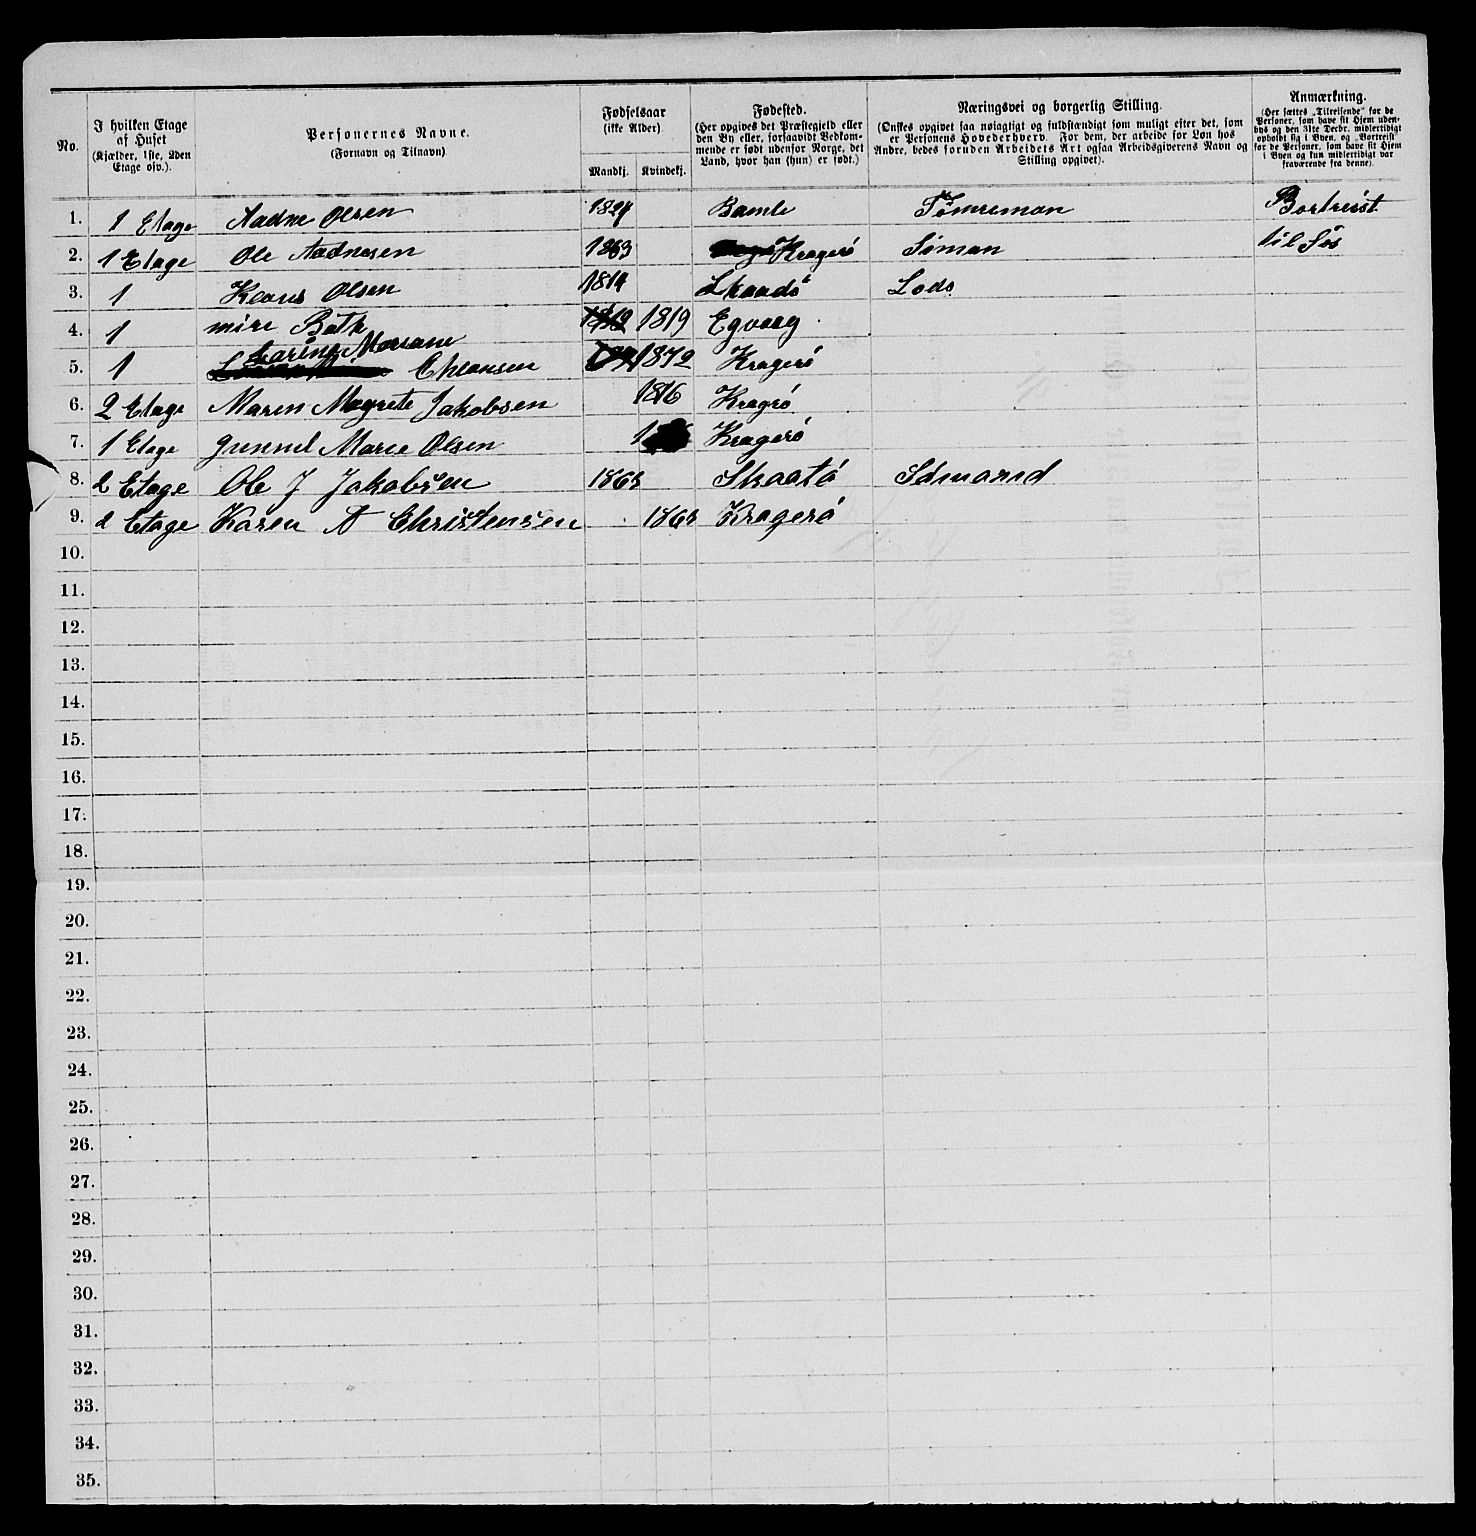 No.
I hvilken Etage af Huset (Kjælder, 1ste, 2den Etage osv.).
Personernes Navne. (Fornavn og Tilnavn)
Fødselsaar (ikke Alder) Mandkj. Kvindekj.
Fødested. (Her opgives det Præstegjeld eller den By eller, forsaavidt Vedkommende er født udenfor Norge, det Land, hvor han (hun) er født.)
Næringsvei og borgerlig Stilling. (Ønskes opgivet saa nøiagtigt og fuldstændigt som muligt efter det, som er Personens Hovederhverv. For dem, der arbeide for Løn hos Andre, bedes foruden Arbeidets Art ogsaa Arbeidsgiverens Navn og Stilling opgivet).
Anmærkning. (Her sættes „Tilreisende" for de Personer, som have sit Hjem udenbys og den 31te Decbr. midlertidigt opholdt sig i Byen, og „Bortreist" for de Personer, som have sit Hjem i Byen og kun midlertidigt var fraværende fra denne).
1. 1 Etage Aadne Olsen 1824 Bamle Tømreman Bortreist
2. 1 Etage Ole Aadnesen 1863 Kragerö Siman til Søs
3. 1 Klaus Olsen 1814 Skaadö Lods
4. 1 Bath 1819 1819 Egvaag
5. 1 Mariane 1872 Kragerö
6. 2 Etage Maren Magrete Jakobsen 1816 Kragrö
7. 1 Etage Gunnil Marie Olsen Kragerö
8. 2 Etage Ole J Jakobsen 1865 Skaatö Sömand
9. 2 Etage Karen A Christensen 1865 Kragerö
10.
11.
12.
13.
14.
15.
16.
17.
18.
19.
20.
21.
22.
23.
24.
25.
26.
27.
28.
29.
30.
31.
32.
33.
34.
35.